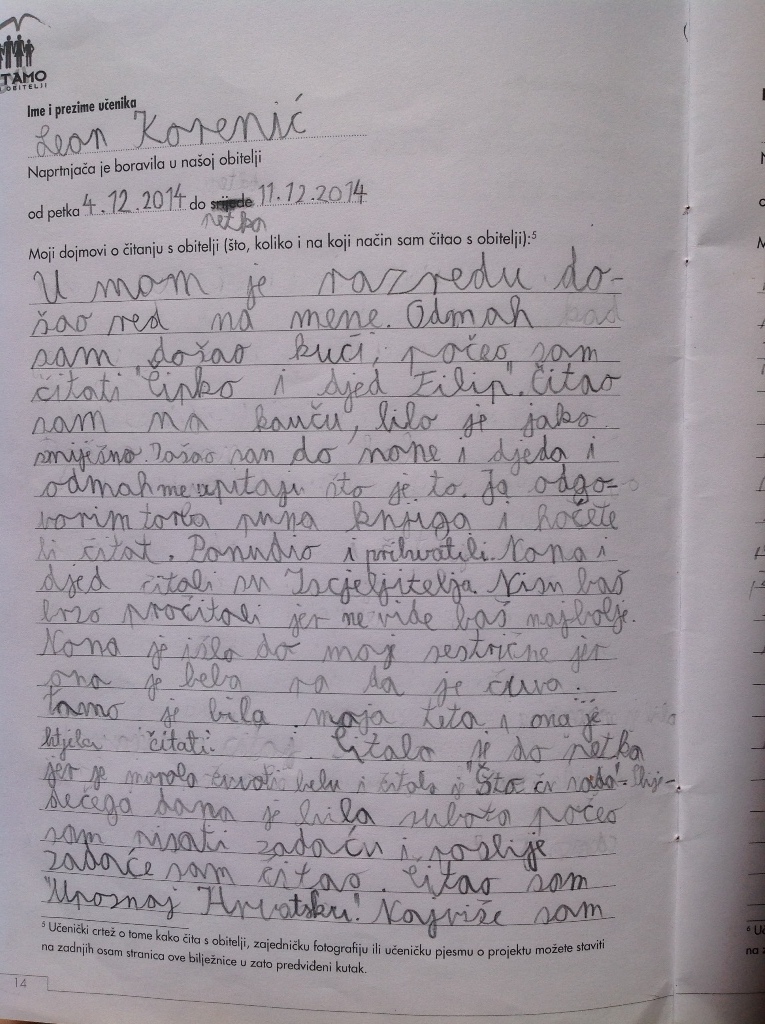 TAMO
OBITELJI
Ime i prezime učenika
Leon Korenić
Naprtnjača je boravila u našoj obitelji
od petka 4.12.2014 do srijede 11.12.2014
petka
Moji dojmovi o čitanju s obitelji (što, koliko i na koji način sam čitao s obitelji):⁵
U mom je razredu do-
šao red na mene. Odmah kad
sam došao kući, počeo sam
čitati "Čipko i djed Filip". Čitao
sam na kauču, bilo je jako
smiješno. Došao sam do none i djeda i
odmah me upitaju što je to. Ja odgo-
vorim torba puna knjiga i hoćete
li čitat. Ponudio i prihvatili. Nona i
djed čitali su Iscjeljitelja. Nisu baš
brzo pročitali jer ne vide baš najbolje.
Nona je išla do moj sestrične jer
ona je beba pa da je čuva.
tamo je bila moja teta i ona je
htjela čitati. Čitala je do petka
jer je morala čuvati bebu i čitala je "Što ću sada" Slije-
dećega dana je bila subota počeo
sam pisati zadaću i poslije
zadaće sam čitao. Čitao sam
"Upoznaj Hrvatsku". Najviše sam
⁵ Učenički crtež o tome kako čita s obitelji, zajedničku fotografiju ili učeničku pjesmu o projektu možete staviti
na zadnjih osam stranica ove bilježnice u zato predviđeni kutak.
14